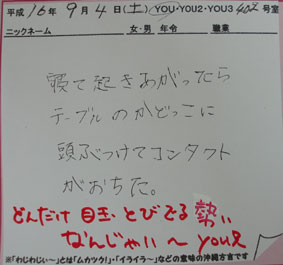 平成16年9月4日(土) YOU・YOU2・YOU3 402号室
ニックネーム 女・男 年令 職業
寝て起きあがったら
テーブルのかどっこに
頭ぶつけてコンタクト
がおちた。
どんだけ目玉とびでる勢い
なんじゃい〜 you2
※「わじわじぃ〜」とは「ムカツク!」・「イライラ〜」などの意味の沖縄方言です